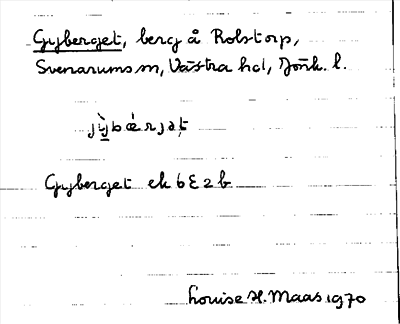 Gyberget, berg å Rolstorp,
Svenarums sn, Västra hd, Jönk. l.
Gyberget ek 6E2b
Louise H. Maas 1970